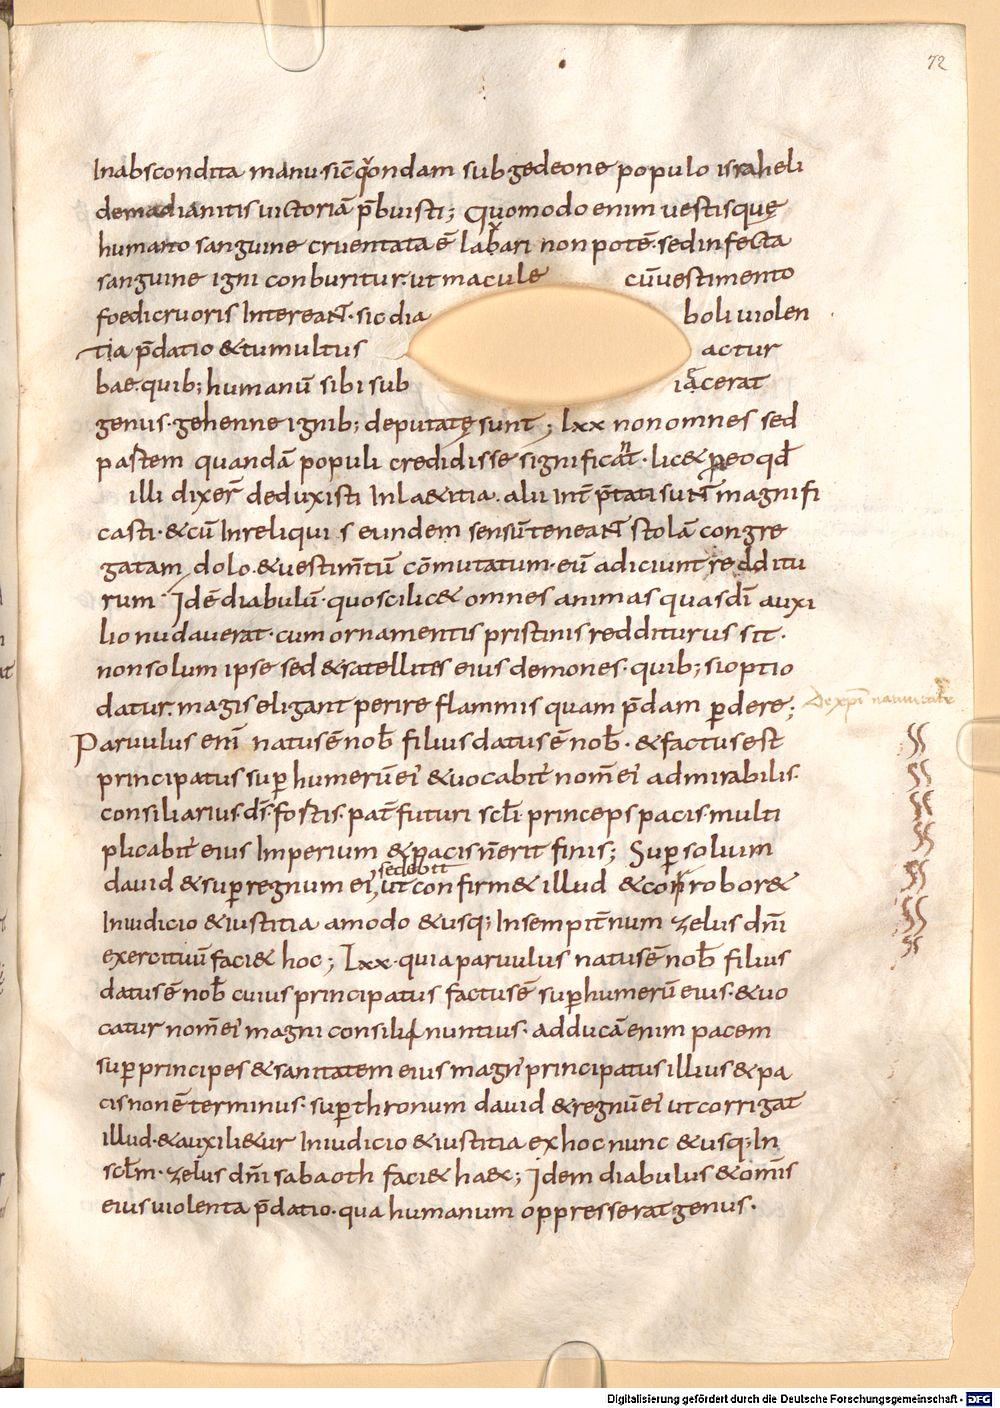 72
Inabscondita manu·sic̄ qͦndam sub gedeone populo israheli
demadianitis uictoriā p̄buisti; Quomodo enim uestisquę
humano sanguine cruentata ē labari non potē·sed infecta
sanguine igni conburitur·ut macule cū uestimento
foedi cruoris Intereant·sic dia boli uiolen
tia p̄datio &tumultus actur
bae·quib; humanū sibi sub iacerat
genus·gehenne ignib; deputatę sunt; lxx non omnes sed
partem quandā populi credidisse significat·lic& p eo qđ
illi dixer̄ deduxisti In la&itia·alii Int̄p̄tati sunt magnifi
casti·&cū In reliquis eundem sensū teneant stolā congre
gatam dolo·&uestim̄tū cōmutatum·eū adiciunt redditu
rum· Idē diabulū·quo scilic& omnes animas quas dī auxi
lio nudauerat·cum ornamentis pristinis redditurus sit·
non solum ipse sed &satellites eius demones·quib; si optio
datur·magis eligant perire flammis quam p̄dam pdere;
De xp̄i natiuitate
Paruulus enī natus ē nob̄ filius datus ē nob̄·&factus est
principatus sup humerū ei' &uocabit̄ nom̄ ei' admirabilis·
consiliarius·d̄s·fortis·pat̄ futuri sc̄li princeps pacis·multi
plicabit̄ eius Imperium &pacis n̄ erit finis; Sup solium
sedebit
dauid &sup regnum ei', ut confirm& illud &conrobor&
In iudicio &iustitia amodo &usq; In sempit̄num zelus dn̄i
exercituū faci& hoc; Lxx·quia paruulus natus ē nob̄ filius
datus ē nob̄ cuius principatus factus ē sup humerū eius·&uo
catur nom̄ ei' magni consilii nuntius·adducā enim pacem
sup principes &sanitatem eius magn' principatus illius &pa
cis non ē terminus·sup thronum dauid &regnū ei' ut corrigat
illud·&auxili&ur In iudicio &iustitia ex hoc nunc &usq; In
sc̄lm·zelus dn̄i sabaoth faci& haec; Idem diabulus &om̄is
eius uiolenta p̄datio·qua humanum oppresserat genus·
Digitalisierung gefördert durch die Deutsche Forschungsgemeinschaft - DFG